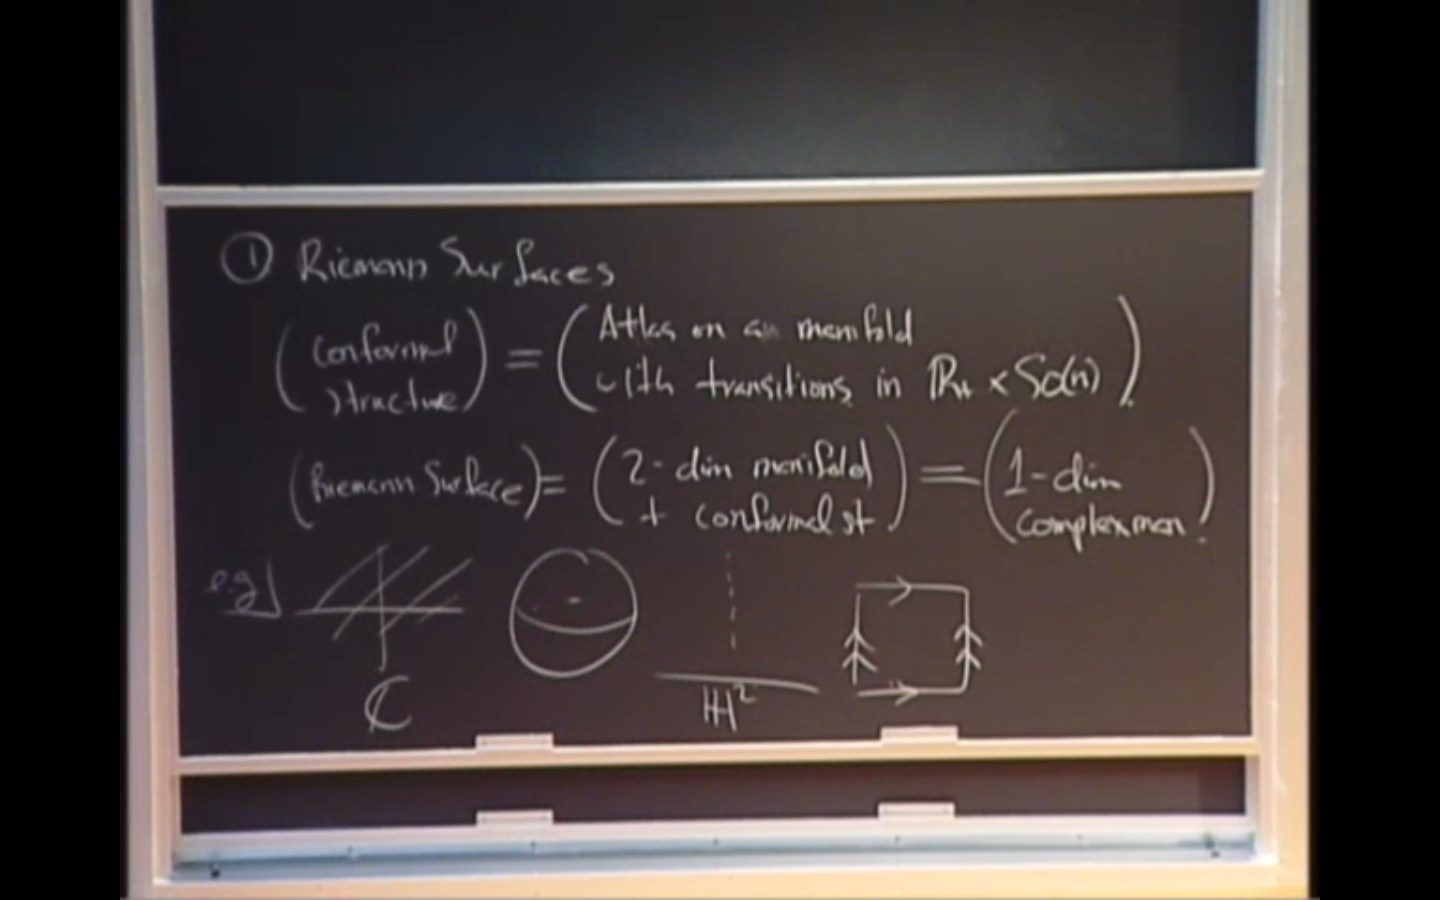 ① Riemann Surfaces
(conformal structure) = (Atlas on an manifold with transitions in ℝ₊ × SO(n)).
(Riemann Surface) = (2-dim manifold + conformal st) = (1-dim complex man.)
e.g.
ℂ
ℍ²